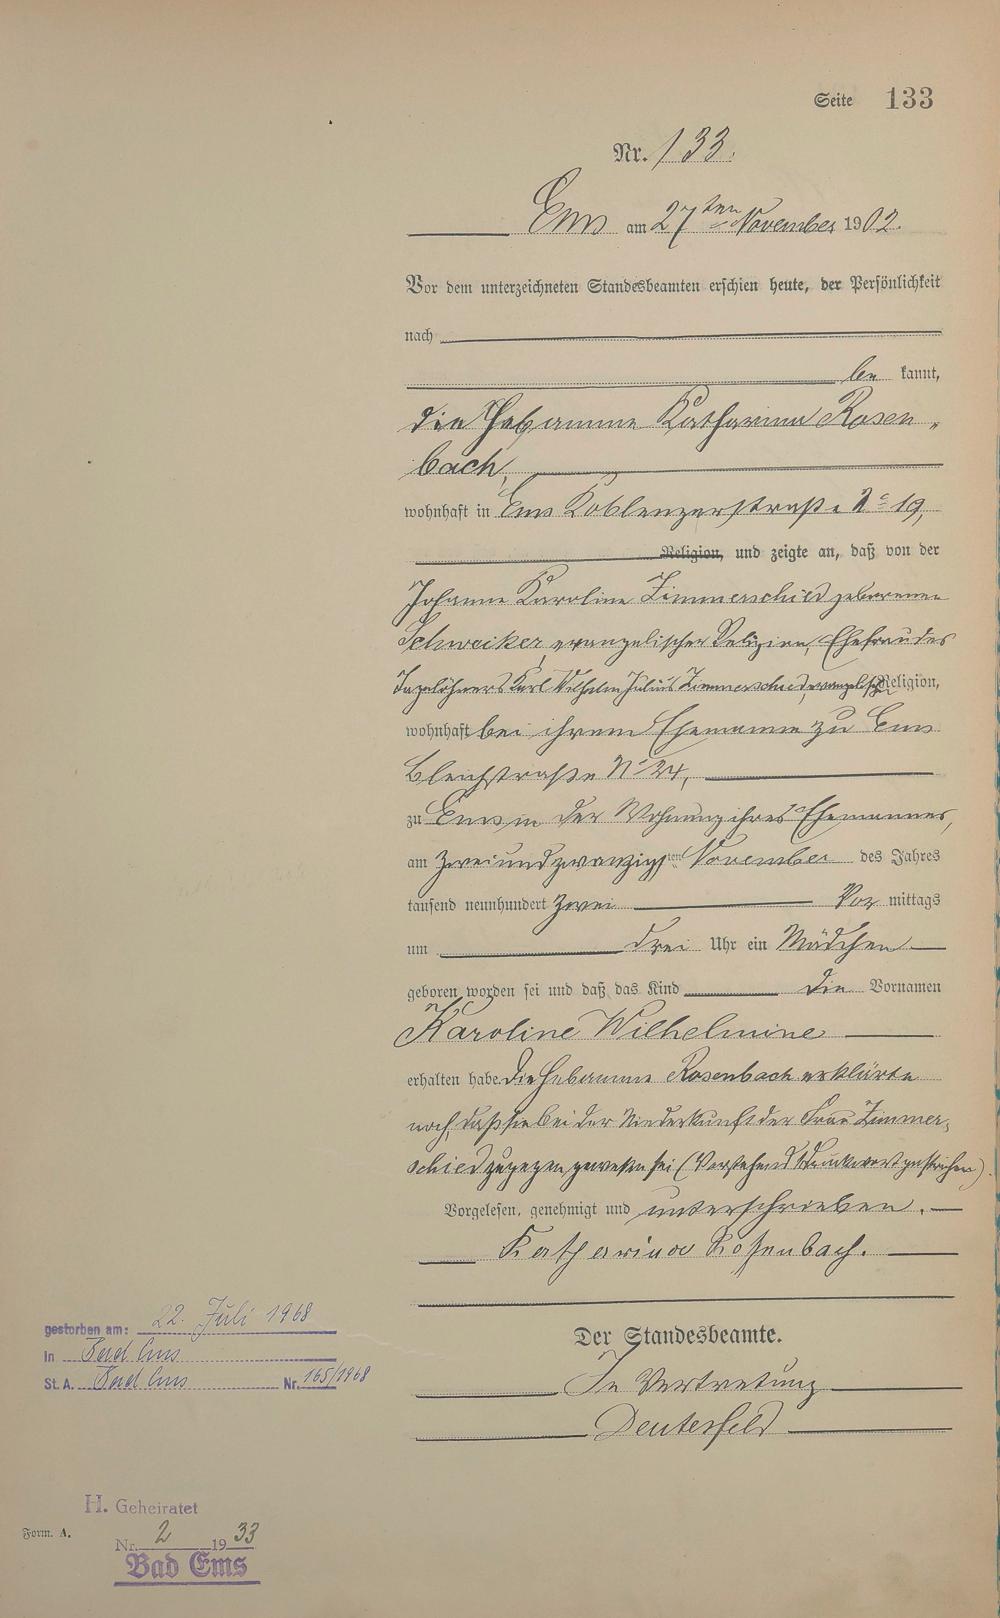 Seite 133
Nr. 133.
Ems am 27ten November 1902.
Vor dem unterzeichneten Standesbeamten erschien heute, der Persönlichkeit
nach
be kannt,
die Hebamme Katharina Rosen„
bach,
wohnhaft in Ems Koblenzerstraße No 19,
Religion, und zeigte an, daß von der
Johanna Karoline Zimmerschied geborenen
Schweiker, evangelischer Religion, Ehefrau des
Tagelöhners Karl Wilhelm Julius Zimmerschied, evangelischer Religion,
wohnhaft bei ihrem Ehemanne zu Ems
Bleichstraße No 24,
zu Ems in der Wohnung ihres Ehemannes,
am zweiundzwanzigsten November des Jahres
tausend neunhundert zwei Vor mittags
um drei Uhr ein Mädchen
geboren worden sei und daß das Kind die Vornamen
Karoline Wilhelmine
erhalten habe. Die Hebamme Rosenbach erklärte
noch, daß sie bei der Niederkunft der Frau Zimmer-
schied zugegen gewesen sei (Vorstehend 1 Druckwort gestrichen).
Vorgelesen, genehmigt und unterschrieben.
Katharina Rosenbach.
Der Standesbeamte.
In Vertretung
Deuterfeld
gestorben am: 22. Juli 1968
In Bad Ems
St. A. Bad Ems Nr. 165/1968
H. Geheiratet
Form. A.
Nr. 2 1933
Bad Ems